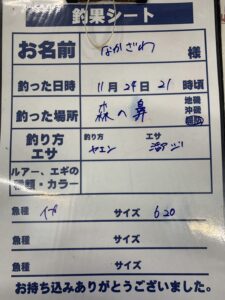 釣果シート
お名前 なかざわ 様
釣った日時 11月29日21時頃
釣った場所 森の鼻 地磯 沖磯
釣り方 エサ 釣り方 ヤエン エサ 活アジ
ルアー、エギの種類・カラー
魚種 イカ サイズ 620
魚種 サイズ
魚種 サイズ
お持ち込みありがとうございました。